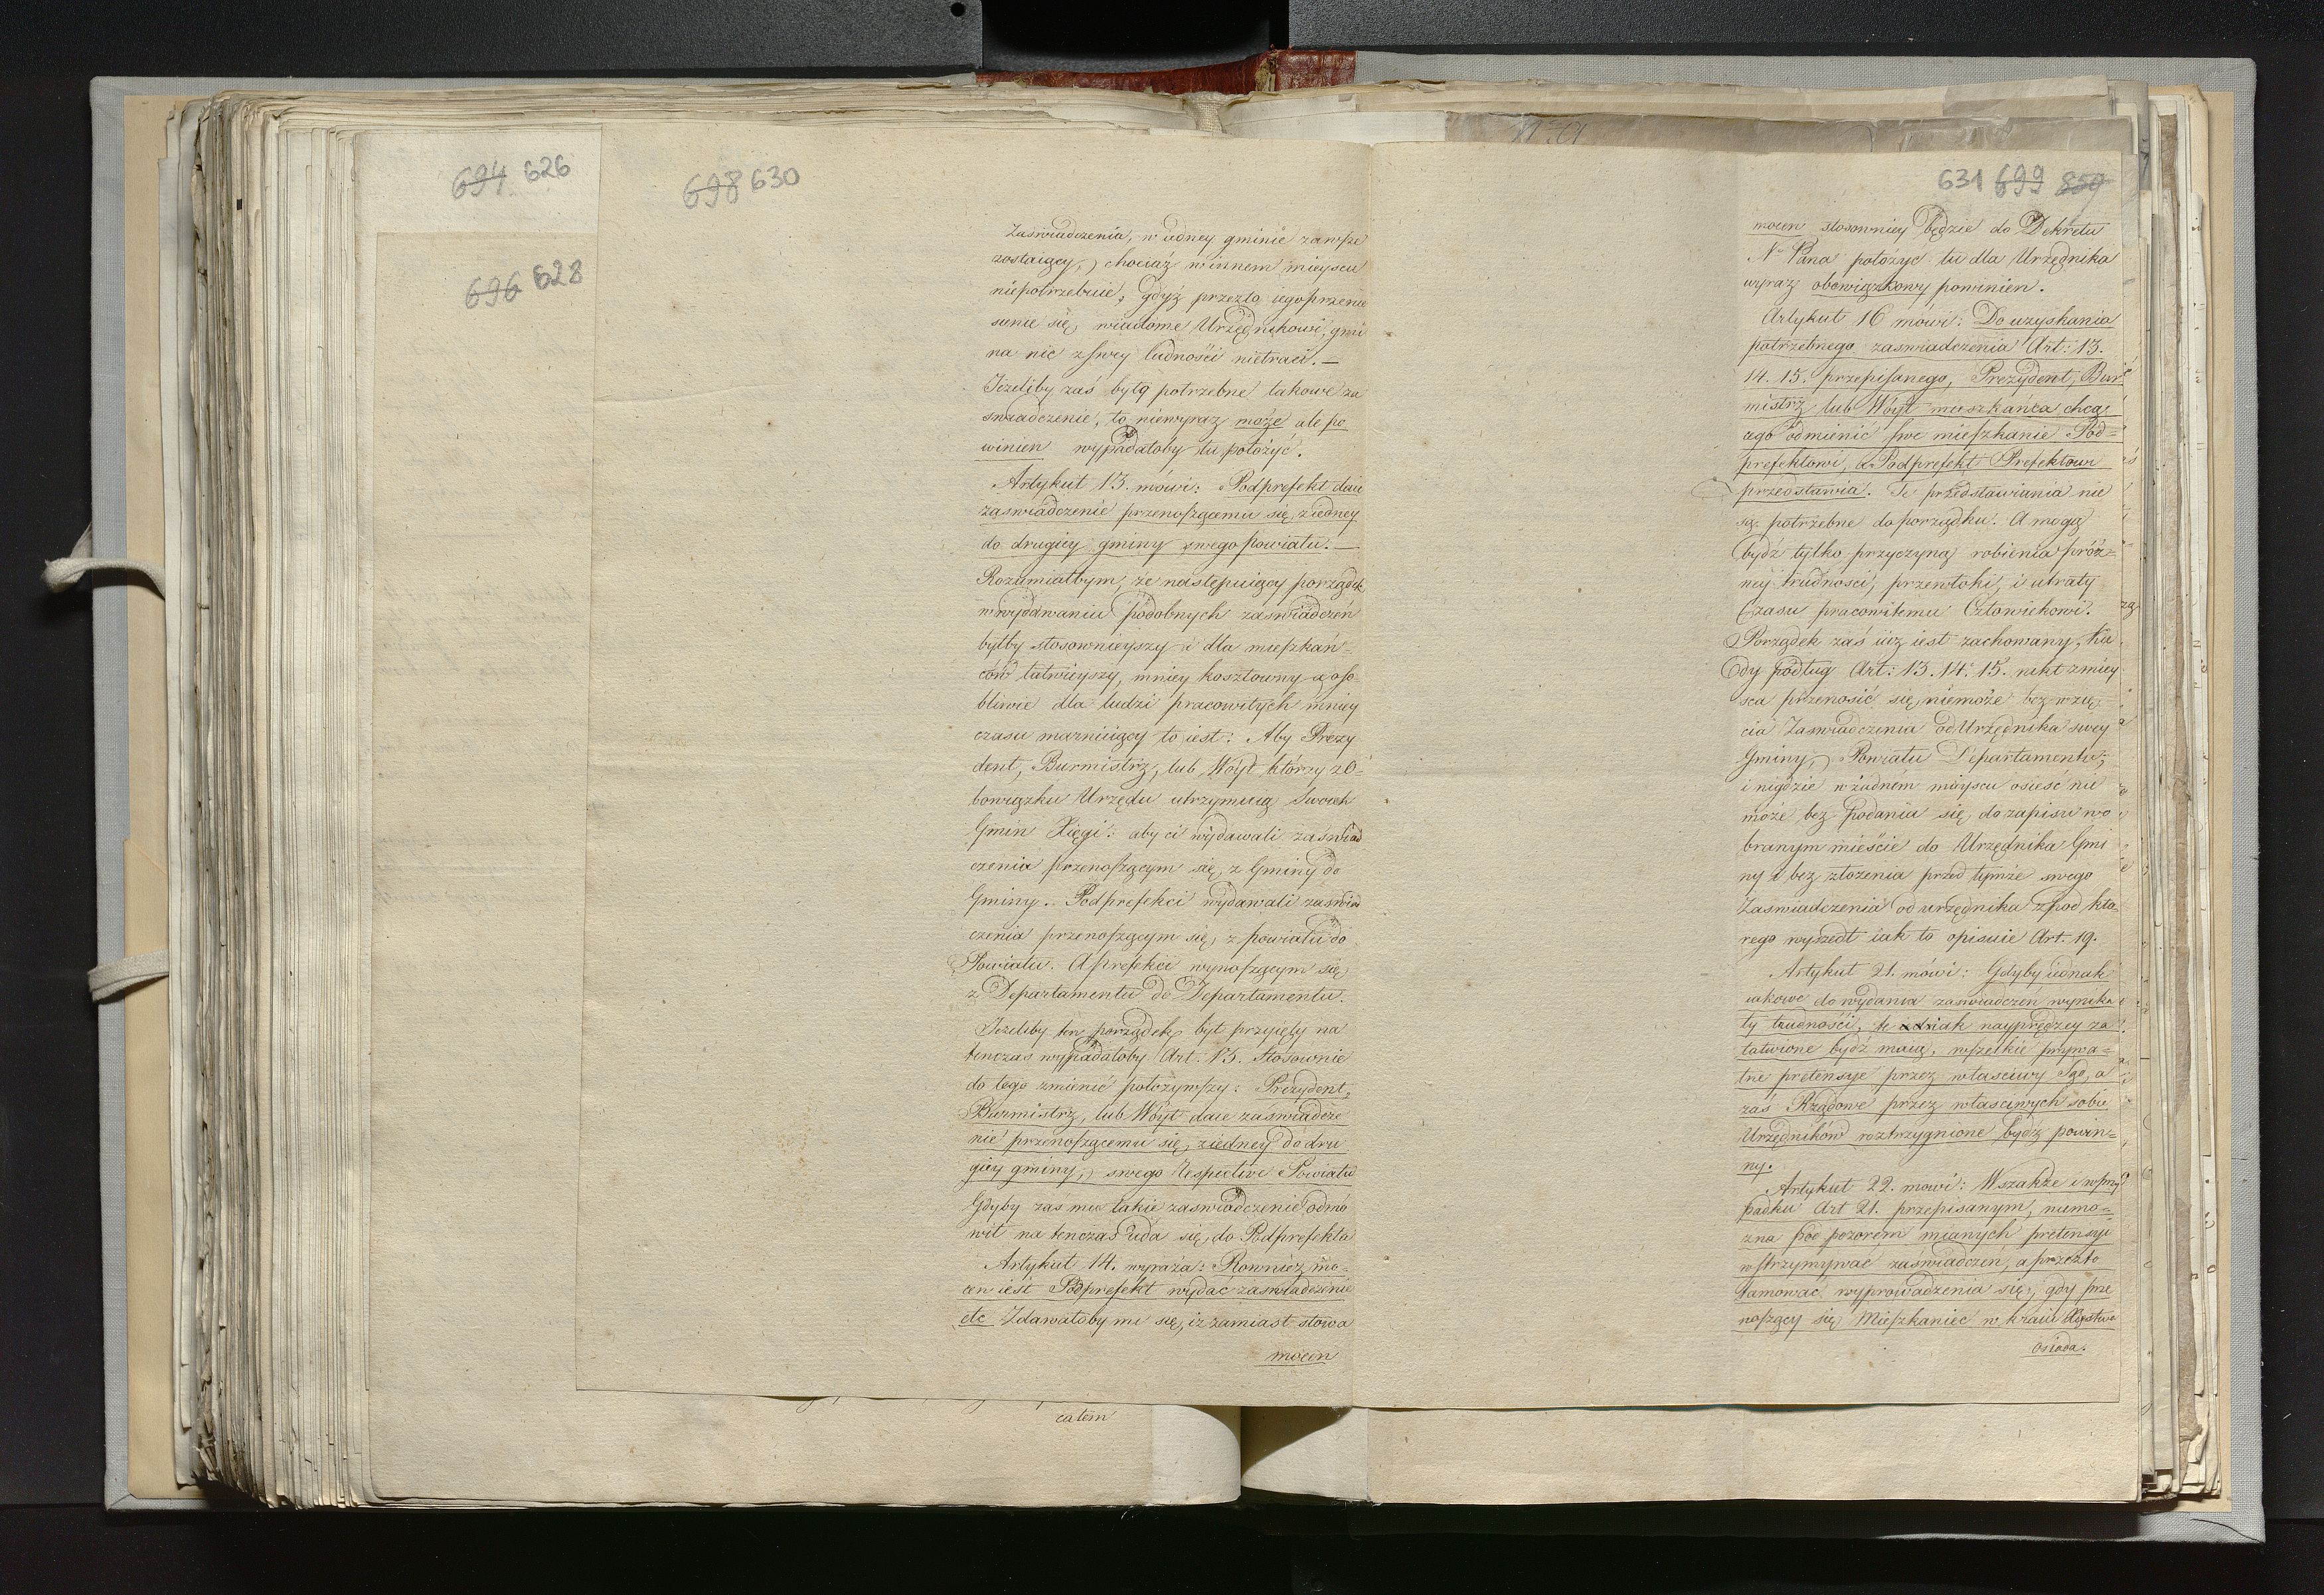 694 626
696 628
698 630
Zaswiadczenia, w iedney gminie zawsze
zostaiący, chociaż w innem mieyscu
niepotrzebnie, gdyż przezto iego przenie
sienie się, wiadome Urzędnikowi, gmi
na nic z swey ludności nietraci. —
Jezeliby zaś było potrzebne takowe za
swiadczenie, to niewyraz może ale po
winien wypadałoby tu położyć.
Artykuł 13. mówi: Podprefekt daie
zaswiadczenie przenoszącemu się, z iedney
do drugiey gminy swego powiatu. —
Rozumiałbym, że następuiący porządek
w wydawaniu podobnych zaswiadczeń
byłby stosownieyszy i dla mieszkań=
ców łatwieyszy, mniey kosztowny a oso
bliwie dla ludzi pracowitych mniey
czasu marnuiący to iest: Aby Prezy
dent, Burmistrz, lub Wóyt którzy z o=
bowiązku Urzędu utrzymuią Swoich
Gmin Xięgi: aby ci wydawali zaświad
czenia przenoszącym się, z Gminy do
Gminy. Podprefekci wydawali zaswiad
czenia przenoszącym się, z powiatu do
Powiatu. A Prefekci wynoszącym się
z Departamentu do Departamentu.
Jezeliby ten porządek był przyięty na
tenczas wypadałoby Art: 13. stosownie
do tego zmienić położywszy: Prezydent,
Burmistrz, lub Wóyt daie zaswiadcze
nie przenoszącemu się, z iedney do dru
giey gminy, swego respective Powiatu
Gdyby zaś mu takie zaswiadczenie odmó
wił na tenczas uda się, do Podprefekta
Artykuł 14. wyraża: Rownież mo=
cen iest Podprefekt wydać zaswiadczenie
etc Zdawałoby mi się, iż zamiast słowa
mocen
catem
631 699 859
mocen stosowniey będzie do Dekretu
N. Pana położyć tu dla Urzędnika
wyraz obowiązkowy powinien.
Artykuł 16 mówi: Do uzyskania
potrzebnego zaswiadczenia Art: 13.
14. 15. przepisanego, Prezydent, Bur
mistrz lub Wóyt mieszkańca chcą
cego odmienić swe mieszkanie Pod=
prefektowi, a Podprefekt Prefektowi
przedstawia. Te przedstawiania nie
są potrzebne do porządku. A mogą
bydź tylko przyczyną robienia próż=
ney trudności, przewłoki, i utraty
Czasu pracowitemu Człowiekowi.
Porządek zaś iuż iest zachowany, Kie
dy podług Art: 13. 14. 15. nikt z miey
sca przenosić się, niemoże bez wzię
cia Zaswiadczenia od Urzędnika swey
Gminy, Powiatu Departamentu;
i nigdzie w żadnem mieyscu osieść nie
może bez podania się, do zapisu w o
branym mieście do Urzędnika Gmi
ny i bez złożenia przed tymże swego
Zaswiadczenia od urzędnika z pod kto
rego wyszedł iak to opisuie Art. 19.
Artykuł 21. mówi: Gdyby iednak
iakowe do wydania zaswiadczeń wynika
ły trudności, te iak nayprędzey za
łatwione bydź maią, wszelkie prywa=
tne pretensye przez właściwy Sąd, a
zaś Rządowe przez właściwych sobie
Urzędników roztrzygnione bydź powin=
ny.
Artykuł 22. mowi: Wszakże i w przy
padku Art 21. przepisanym, niemo=
żna pod pozorem mianych pretensyi
wstrzymywać zaświadczeń, a przezto
tamować wyprowadzenia się, gdy prze
noszący się Mieszkaniec w kraiu Xięstwa
osiada.